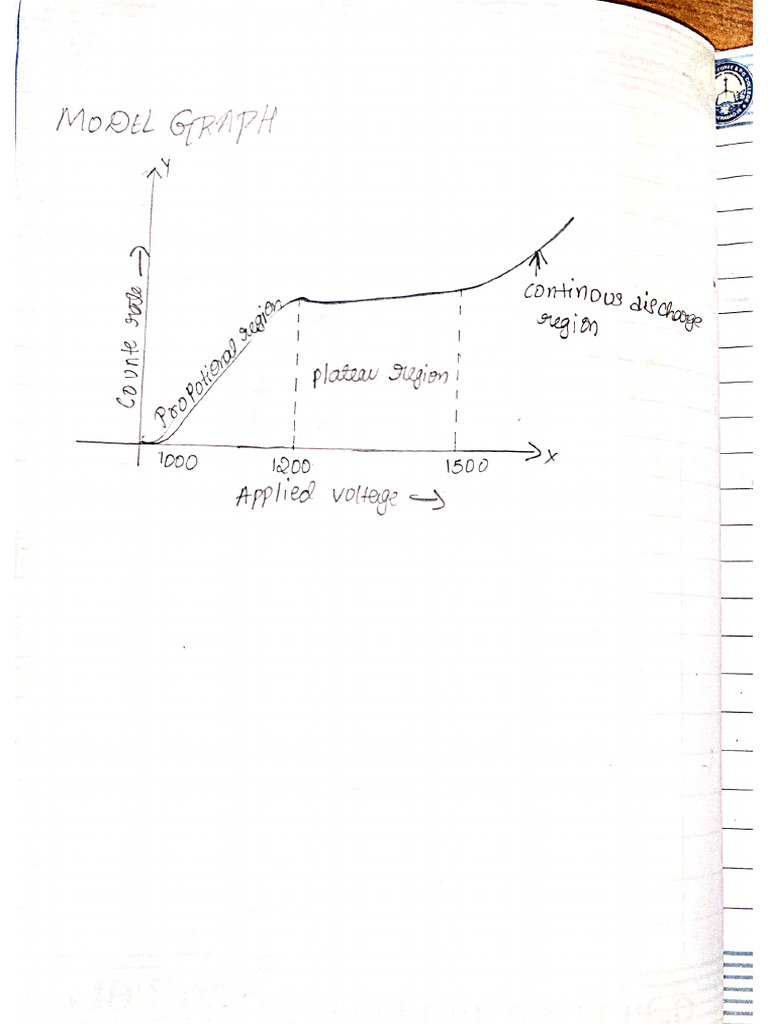 MODEL GRAPH
Y
Counte rate →
Propotional region
plateau region
continous discharge
region
1000
1200
1500
X
Applied voltage →